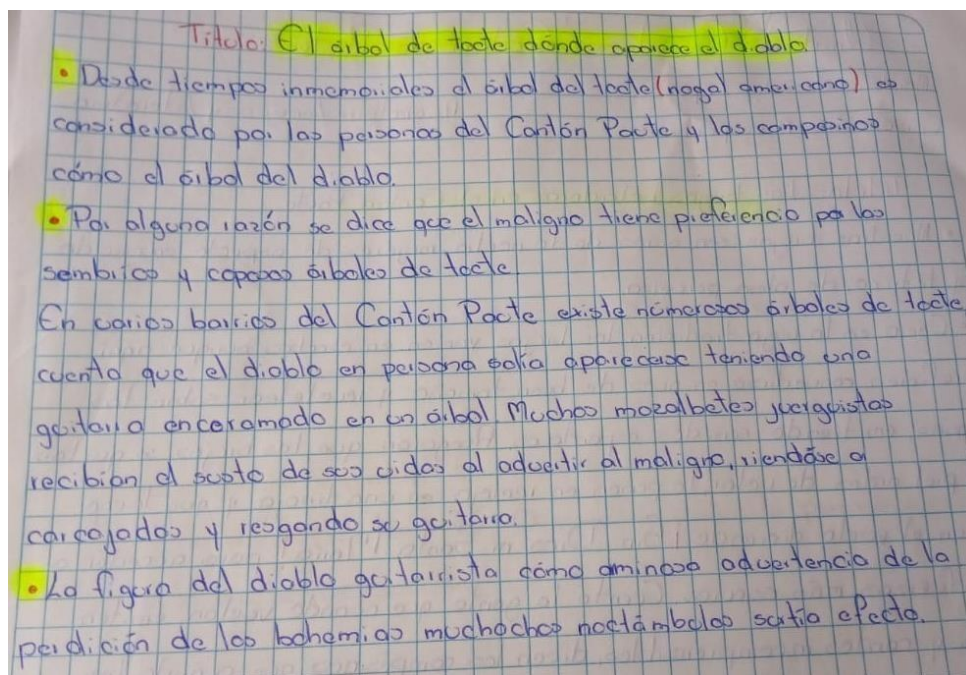 Titulo: El árbol de tocte dónde aparece el diablo
• Desde tiempos inmemoriales el árbol del tocte (nogal americano) es
considerado por las personas del Cantón Paute y los campesinos
cómo el árbol del diablo.
• Por alguna razón se dice que el maligno tiene preferencia por los
sembríos y coposos árboles de tocte
En varios barrios del Cantón Paute existe númerosos árboles de tocte
cuenta que el diablo en persona solía aparecerse teniendo una
guitarra enceramado en un árbol Muchos mozalbetes juerguistas
recibian el susto de sus vidas al advertir al maligno, riendóse a
carcajadas y resgando su guitarra.
• La figura del diablo guitarrista cómo aminosa advertencia de la
perdición de los bohemios muchochos noctámbulos surtío efecto.